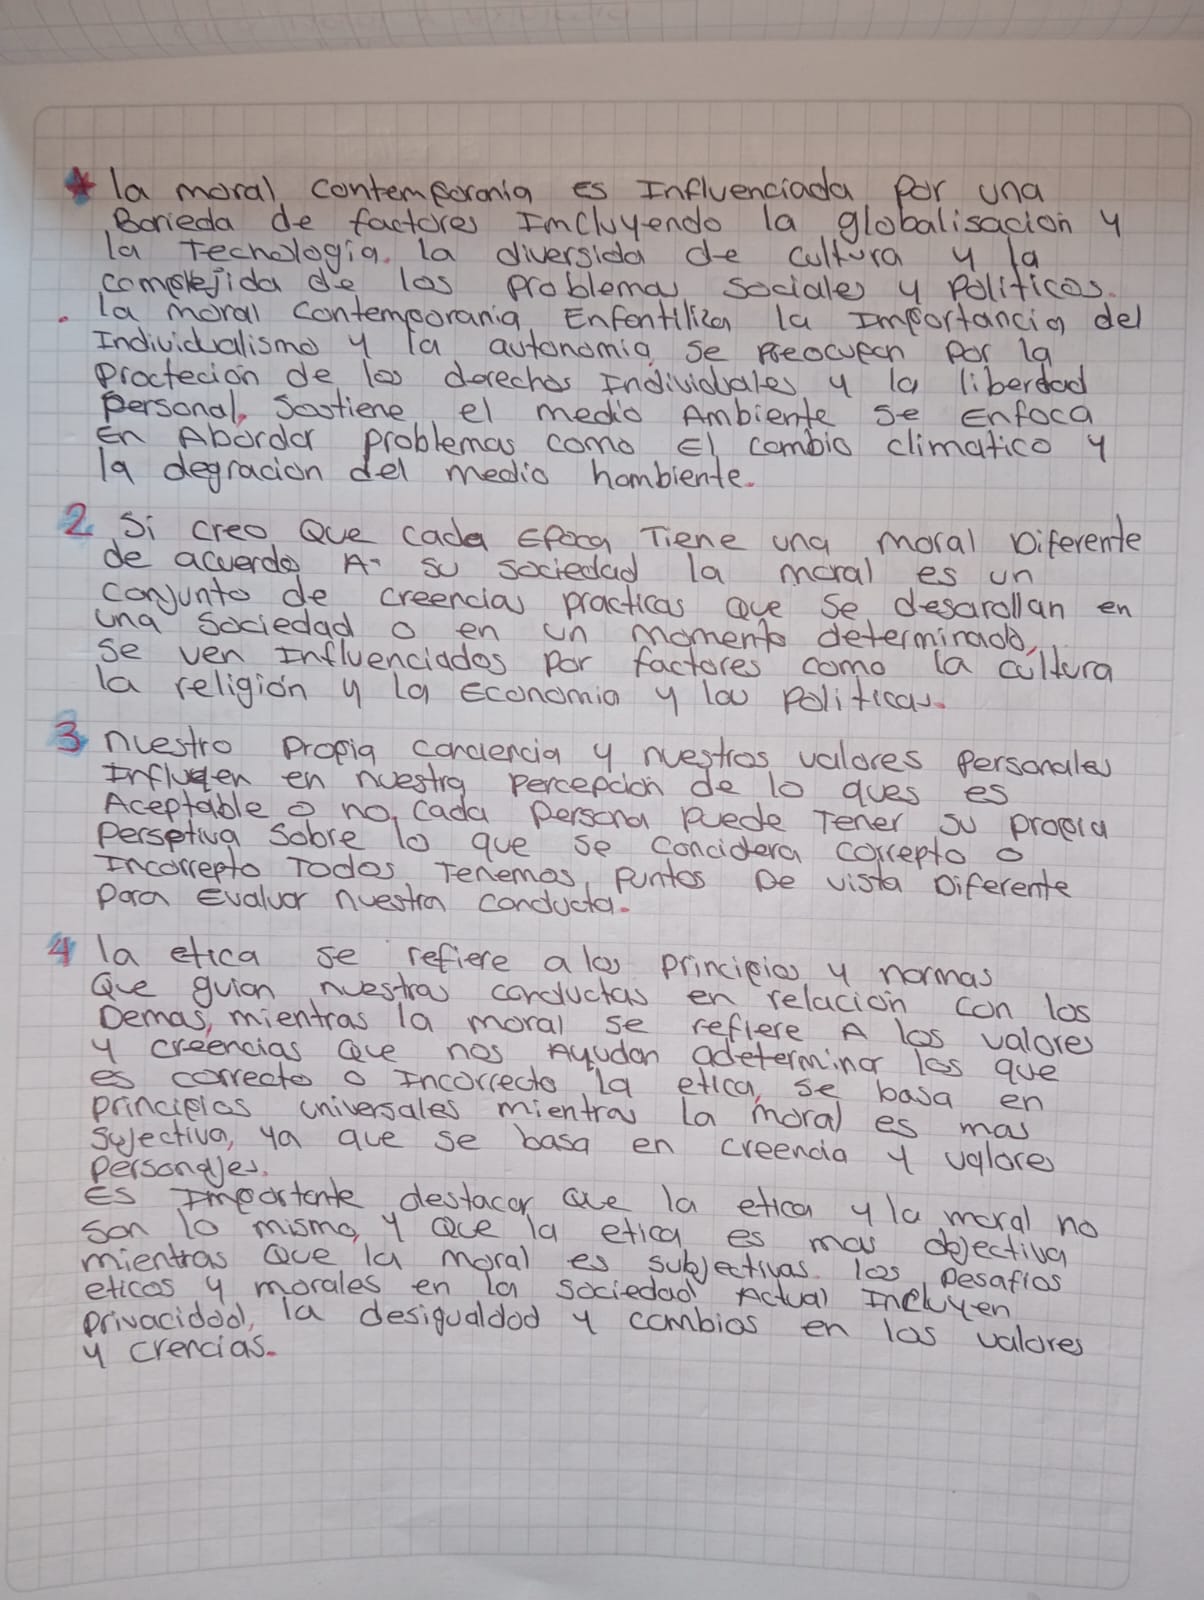 * la moral contemporania es Influenciada por una
Barieda de factores Imcluyendo la globalisacion y
la Technologia. la diversida de cultura y la
complejida de los problemas sociales y Politicos.
. la moral contemporania Enfentiliza la Importancia del
Individualismo y la autonomia se Preocupan por la
Proctecion de los derechos Individuales y la liberdad
personal. Sostiene el medio Ambiente se Enfoca
En Abordar problemas como El cambio climatico y
la degracion del medio hambiente.
2 Si creo Que cada Epoca Tiene una moral Diferente
de acuerdo A su sociedad la moral es un
conjunto de creencias practicas Que se desarollan en
una Sociedad o en un momento determinado,
se ven Influenciados por factores como la cultura
la religión y la Economia y las politicas.
3 nuestro propia conciencia y nuestros valores personales
Influyen en nuestra percepcion de lo ques es
Aceptable o no, cada persona puede Tener su propia
Perseptiva Sobre lo que se concidera correpto o
Incorrepto Todos Tenemos puntos De vista Diferente
para Evaluar nuestra conducta.
4 la etica se refiere a los principios y normas
Que guian nuestras conductas en relacion con los
Demas, mientras la moral se refiere A los valores
y creencias Que nos Ayudan adeterminar los que
es correcto o Incorrecto la etica, se basa en
principios universales mientras la moral es mas
sujectiva, ya que se basa en creencia y valores
personales.
Es Importante destacar Que la etica y la moral no
son lo mismo, y Que la etica es mas objectiva
mientras Que la moral es subjectivas. los Desafios
eticos y morales en la sociedad Actual Incluyen
privacidad, la desigualdad y cambios en los valores
y crencias.